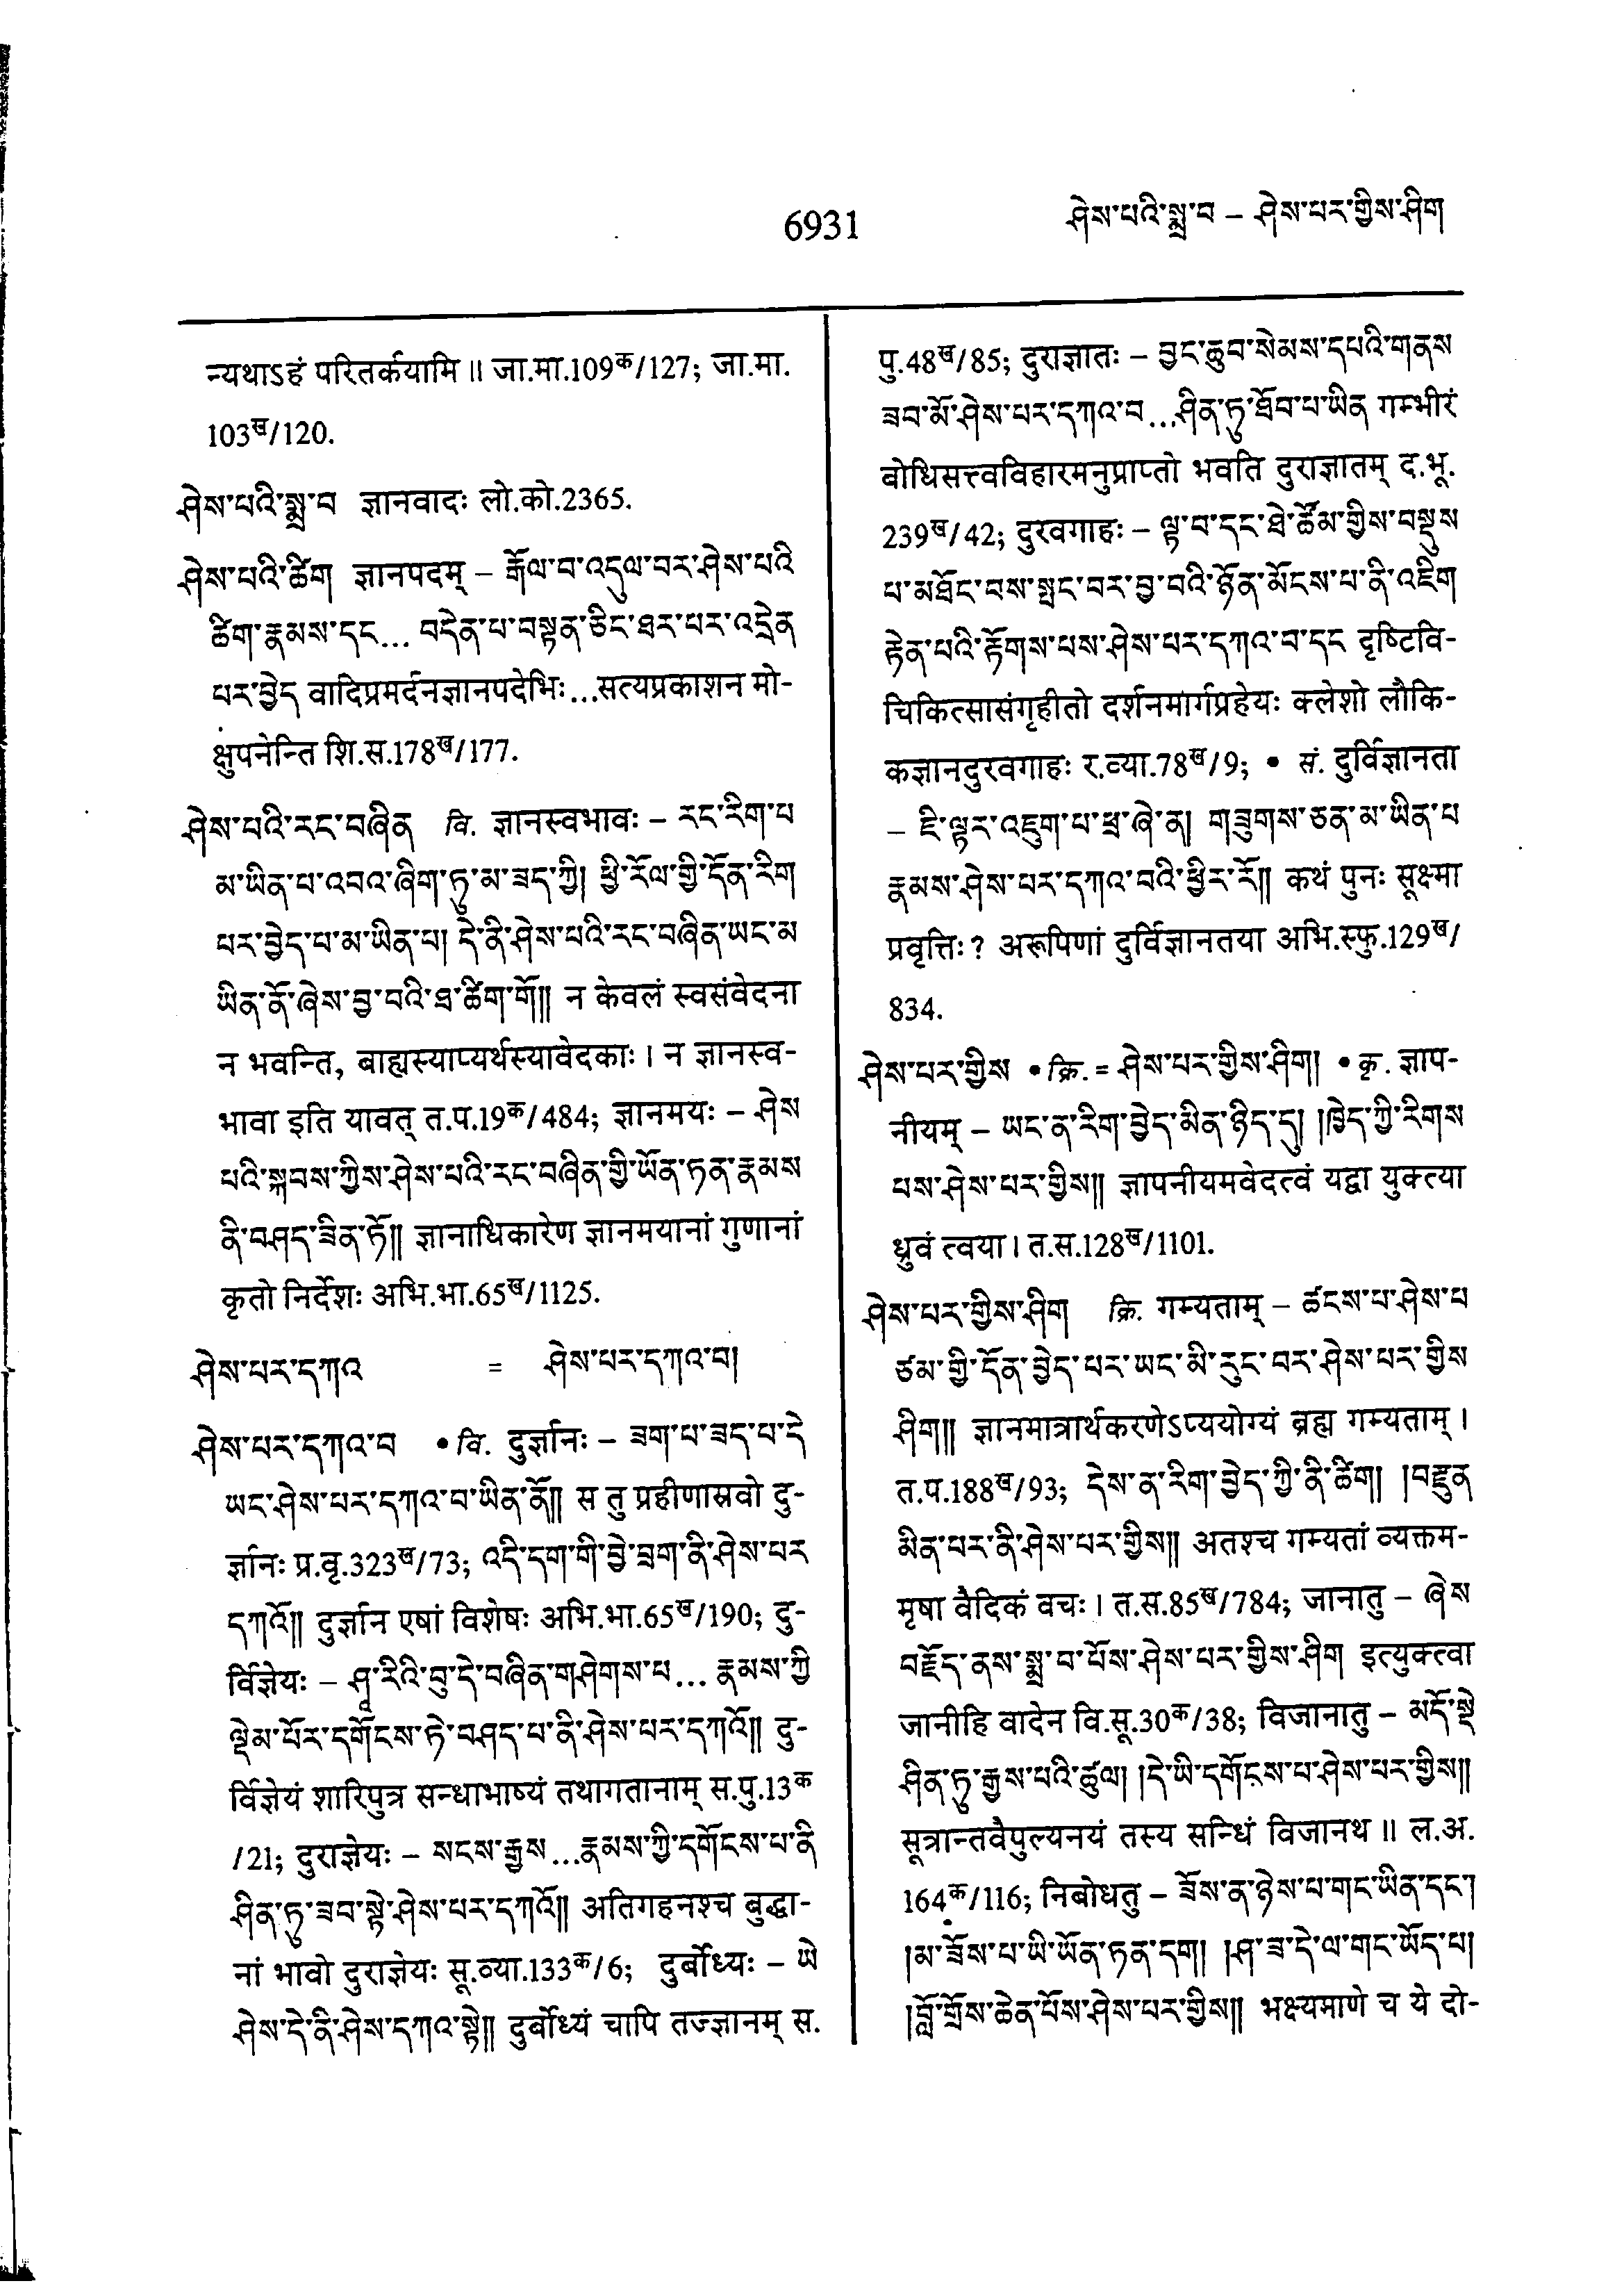 6931
ཤེས་པའི་སྨྲ་བ – ཤེས་པར་གྱིས་ཤིག
न्यथाऽहं परितर्कयामि ॥ जा.मा.109क/127; जा.मा.
103ख/120.
ཤེས་པའི་སྨྲ་བ ज्ञानवादः लो.को.2365.
ཤེས་པའི་ཚིག ज्ञानपदम् – རྒོལ་བ་འདུལ་བར་ཤེས་པའི
ཚིག་རྣམས་དང... བདེན་པ་བསྟན་ཅིང་ཐར་པར་འདྲེན
པར་བྱེད वादिप्रमर्दनज्ञानपदेभिः...सत्यप्रकाशन मो-
क्षुपनेन्ति शि.स.178ख/177.
ཤེས་པའི་རང་བཞིན वि. ज्ञानस्वभावः – རང་རིག་པ
མ་ཡིན་པ་འབའ་ཞིག་ཏུ་མ་ཟད་ཀྱི། ཕྱི་རོལ་གྱི་དོན་རིག
པར་བྱེད་པ་མ་ཡིན་པ། དེ་ནི་ཤེས་པའི་རང་བཞིན་ཡང་མ
ཡིན་ནོ་ཞེས་བྱ་བའི་ཐ་ཚིག་གོ།། न केवलं स्वसंवेदना
न भवन्ति, बाह्यस्याप्यर्थस्यावेदकाः। न ज्ञानस्व-
भावा इति यावत् त.प.19क/484; ज्ञानमयः – ཤེས
པའི་སྐབས་ཀྱིས་ཤེས་པའི་རང་བཞིན་གྱི་ཡོན་ཏན་རྣམས
ནི་བཤད་ཟིན་ཏོ།། ज्ञानाधिकारेण ज्ञानमयानां गुणानां
कृतो निर्देशः अभि.भा.65ख/1125.
ཤེས་པར་དཀའ = ཤེས་པར་དཀའ་བ།
ཤེས་པར་དཀའ་བ • वि. दुर्ज्ञानः – ཟག་པ་ཟད་པ་དེ
ཡང་ཤེས་པར་དཀའ་བ་ཡིན་ནོ།། स तु प्रहीणास्रवो दु-
र्ज्ञानः प्र.वृ.323ख/73; འདི་དག་གི་བྱེ་བྲག་ནི་ཤེས་པར
དཀའོ།། दुर्ज्ञान एषां विशेषः अभि.भा.65ख/190; दु-
र्विज्ञेयः – ཤཱ་རིའི་བུ་དེ་བཞིན་གཤེགས་པ... རྣམས་ཀྱི
ལྡེམ་པོར་དགོངས་ཏེ་བཤད་པ་ནི་ཤེས་པར་དཀའོ།། दु-
र्विज्ञेयं शारिपुत्र सन्धाभाष्यं तथागतानाम् स.पु.13क
/21; दुराज्ञेयः – སངས་རྒྱས...རྣམས་ཀྱི་དགོངས་པ་ནི
ཤིན་ཏུ་ཟབ་སྟེ་ཤེས་པར་དཀའོ།། अतिगहनश्च बुद्धा-
नां भावो दुराज्ञेयः सू.व्या.133क/6; दुर्बोध्यः – ཡེ
ཤེས་དེ་ནི་ཤེས་དཀའ་སྟེ།། दुर्बोध्यं चापि तज्ज्ञानम् स.
पु.48ख/85; दुराज्ञातः – བྱང་ཆུབ་སེམས་དཔའི་གནས
ཟབ་མོ་ཤེས་པར་དཀའ་བ...ཤིན་ཏུ་ཐོབ་པ་ཡིན गम्भीरं
बोधिसत्त्वविहारमनुप्राप्तो भवति दुराज्ञातम् द.भू.
239ख/42; दुरवगाहः – ལྟ་བ་དང་ཐེ་ཚོམ་གྱིས་བསྡུས
པ་མཐོང་བས་སྤང་བར་བྱ་བའི་ཉོན་མོངས་པ་ནི་འཇིག
རྟེན་པའི་རྟོགས་པས་ཤེས་པར་དཀའ་བ་དང दृष्टिवि-
चिकित्सासंगृहीतो दर्शनमार्गप्रहेयः क्लेशो लौकि-
कज्ञानदुरवगाहः र.व्या.78ख/9; • सं. दुर्विज्ञानता
– ཇི་ལྟར་འཇུག་པ་ཕྲ་ཞེ་ན། གཟུགས་ཅན་མ་ཡིན་པ
རྣམས་ཤེས་པར་དཀའ་བའི་ཕྱིར་རོ།། कथं पुनः सूक्ष्मा
प्रवृत्तिः? अरूपिणां दुर्विज्ञानतया अभि.स्फु.129ख/
834.
ཤེས་པར་གྱིས • क्रि. = ཤེས་པར་གྱིས་ཤིག། • कृ. ज्ञाप-
नीयम् – ཡང་ན་རིག་བྱེད་མིན་ཉིད་དུ། །ཁྱེད་ཀྱི་རིགས
པས་ཤེས་པར་གྱིས།། ज्ञापनीयमवेदत्वं यद्वा युक्त्या
ध्रुवं त्वया। त.स.128ख/1101.
ཤེས་པར་གྱིས་ཤིག क्रि. गम्यताम् – ཚངས་པ་ཤེས་པ
ཙམ་གྱི་དོན་བྱེད་པར་ཡང་མི་རུང་བར་ཤེས་པར་གྱིས
ཤིག།། ज्ञानमात्रार्थकरणेऽप्ययोग्यं ब्रह्म गम्यताम्।
त.प.188ख/93; དེས་ན་རིག་བྱེད་ཀྱི་ནི་ཚིག། །བརྫུན
མིན་པར་ནི་ཤེས་པར་གྱིས།། अतश्च गम्यतां व्यक्तम-
मृषा वैदिकं वचः। त.स.85ख/784; जानातु – ཞེས
བརྗོད་ནས་སྨྲ་བ་པོས་ཤེས་པར་གྱིས་ཤིག इत्युक्त्वा
जानीहि वादेन वि.सू.30क/38; विजानातु – མདོ་སྡེ
ཤིན་ཏུ་རྒྱས་པའི་ཚུལ། །དེ་ཡི་དགོངས་པ་ཤེས་པར་གྱིས།།
सूत्रान्तवैपुल्यनयं तस्य सन्धिं विजानथ ॥ ल.अ.
164क/116; निबोधतु – ཟོས་ན་ཉེས་པ་གང་ཡིན་དང་།
།མ་ཟོས་པ་ཡི་ཡོན་ཏན་དག། །ཤ་ཟ་དེ་ལ་གང་ཡོད་པ།
།བློ་གྲོས་ཆེན་པོས་ཤེས་པར་གྱིས།། भक्ष्यमाणे च ये दो-